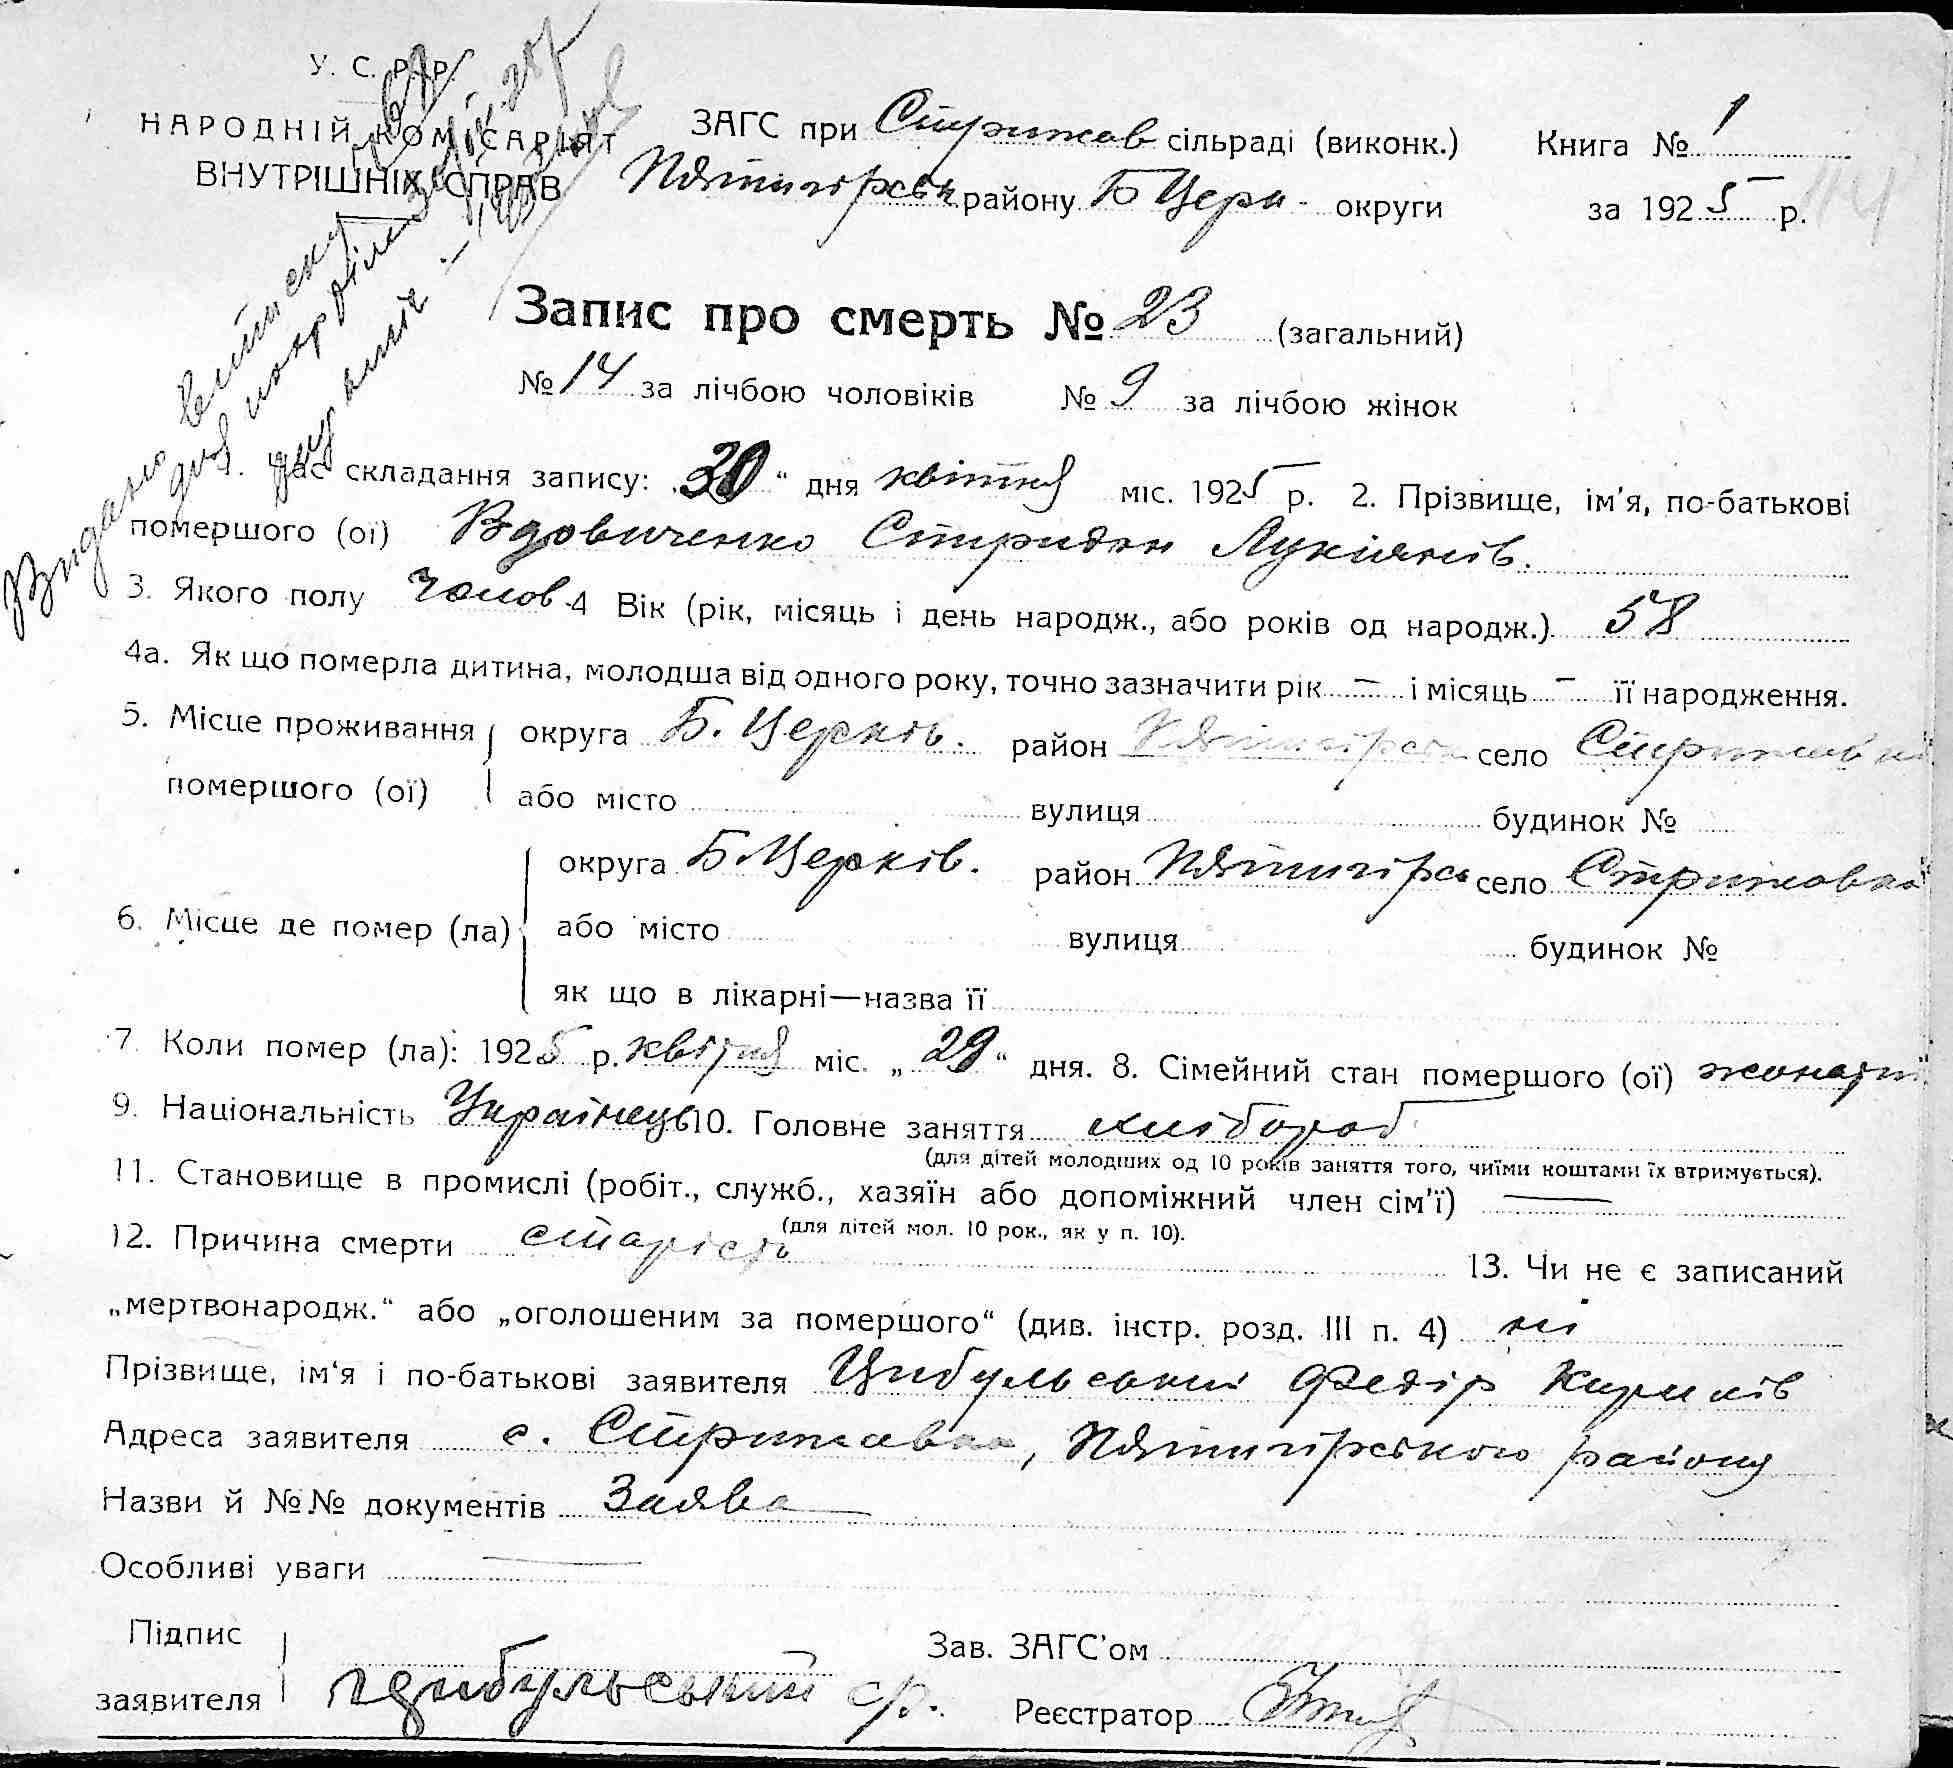 У. С. Р. Р.
НАРОДНІЙ КОМІСАРІЯТ
ВНУТРІШНІХ СПРАВ
ЗАГС при Стрижав сільраді (виконк.) Книга № 1
Пятигірськ району Б Церк - округи за 1925 р.
114
Видано виписку
для
Запис про смерть № 23 (загальний)
№ 14 за лічбою чоловіків № 9 за лічбою жінок
1. Час складання запису: „30“ дня квітня міс. 1925 р. 2. Прізвище, ім'я, по-батькові
помершого (ої) Вдовиченко Спиридон Лукіянів.
3. Якого полу Чолов 4 Вік (рік, місяць і день народж., або років од народж.) 58
4а. Як що померла дитина, молодша від одного року, точно зазначити рік — і місяць — її народження.
5. Місце проживання округа Б. Церків. район Пятигірськ село Стрижавка
помершого (ої) або місто вулиця будинок №
округа Б. Церків. район Пятигірсь село Стрижавка
6. Місце де помер (ла) або місто вулиця будинок №
як що в лікарні—назва її
7. Коли помер (ла): 1925 р. квітня міс. „29“ дня. 8. Сімейний стан помершого (ої) жонатий
9. Національність Українець 10. Головне заняття хлібороб
(для дітей молодших од 10 років заняття того, чиїми коштами їх втримується).
11. Становище в промислі (робіт., служб., хазяїн або допоміжний член сім'ї) —
(для дітей мол. 10 рок., як у п. 10).
12. Причина смерти старість 13. Чи не є записаний
„мертвонародж.“ або „оголошеним за помершого“ (див. інстр. розд. III п. 4) ні
Прізвище, ім'я і по-батькові заявителя Цибульський Федір Кирилів
Адреса заявителя с. Стрижавка, Пятигірського району
Назви й №№ документів Заява
Особливі уваги —
Підпис
заявителя Цибульський Ф.
Зав. ЗАГС'ом
Реєстратор